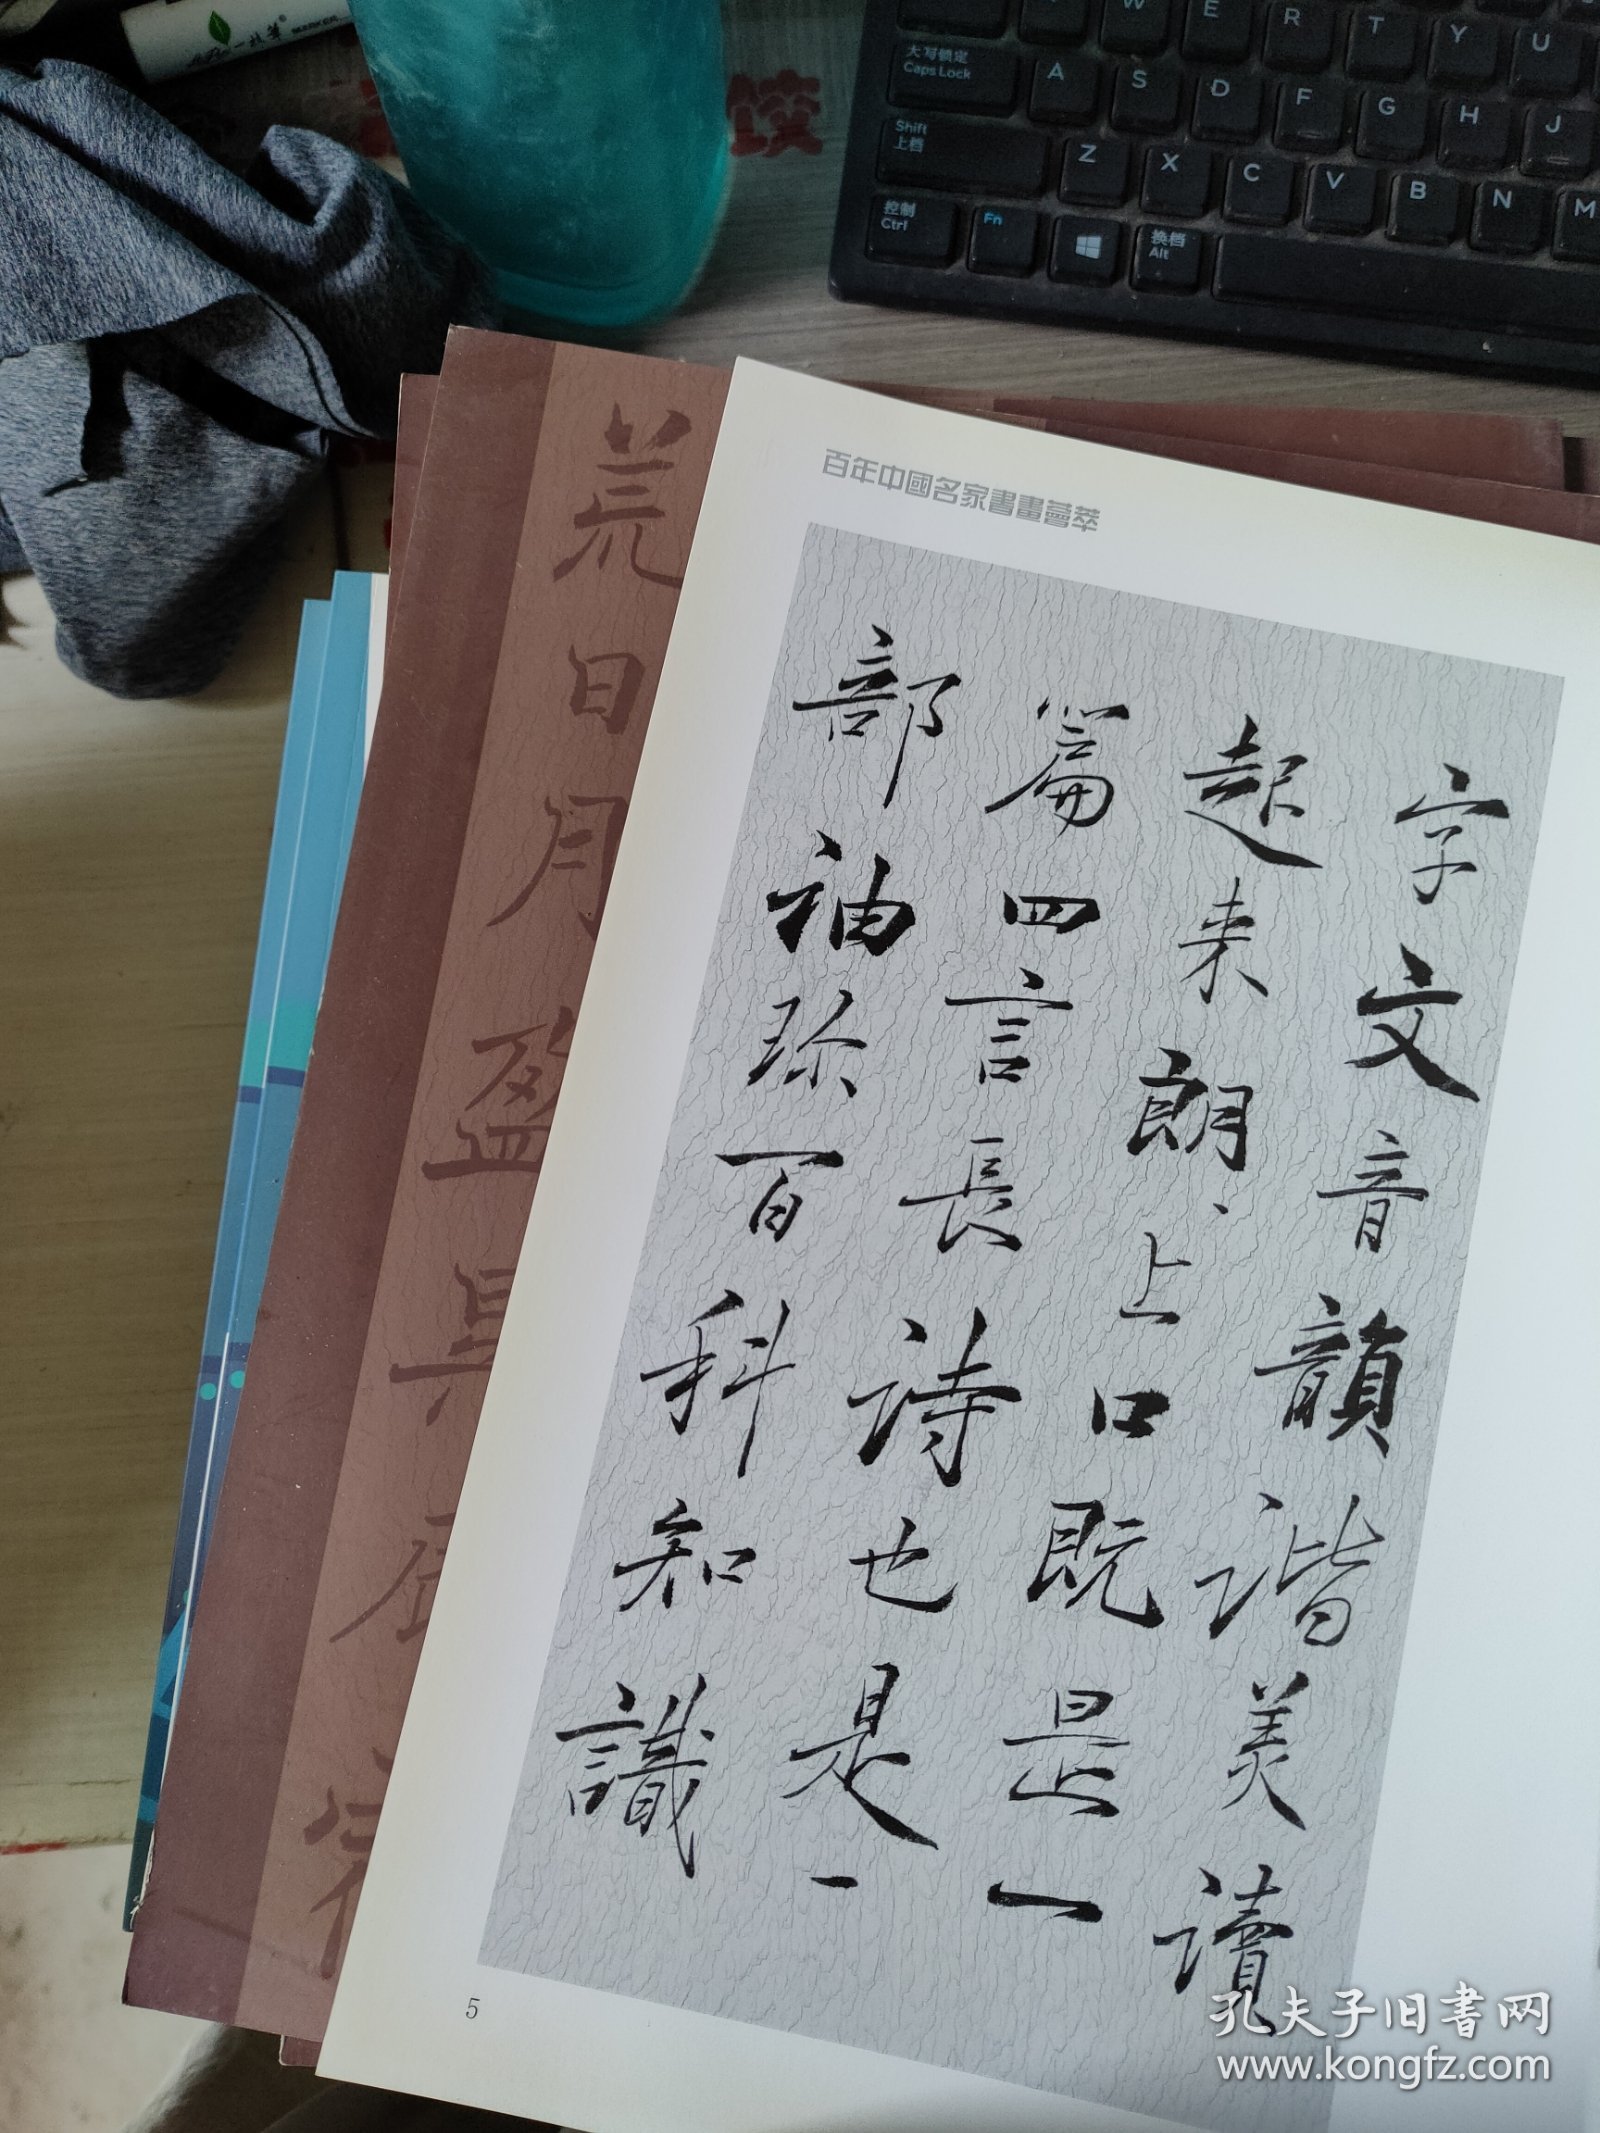 百年中國名家書畫薈萃
字文音韻諧美讀
起来朗、上口既是一
篇四言長詩也是一
部袖珍百科知識
5
荒
日月盈昃辰宿
一枝筆
MARKER
W E R T Y U
大写锁定
Caps Lock
A S D F G H J
Shift
上档
Z X C V B N M
控制
Ctrl
Fn
换档
Alt
孔夫子旧書网
www.kongfz.com